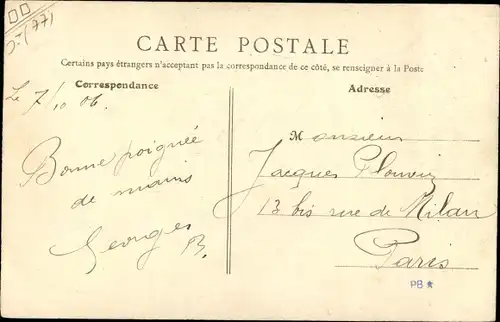 CARTE POSTALE
Certains pays étrangers n'acceptant pas la correspondance de ce côté, se renseigner à la Poste
Correspondance
Adresse
Le 7/10 06.
Bonne poignée
de mains
Georges B.
Monsieur
Jacques
13 bis rue de Milan
Paris
PB